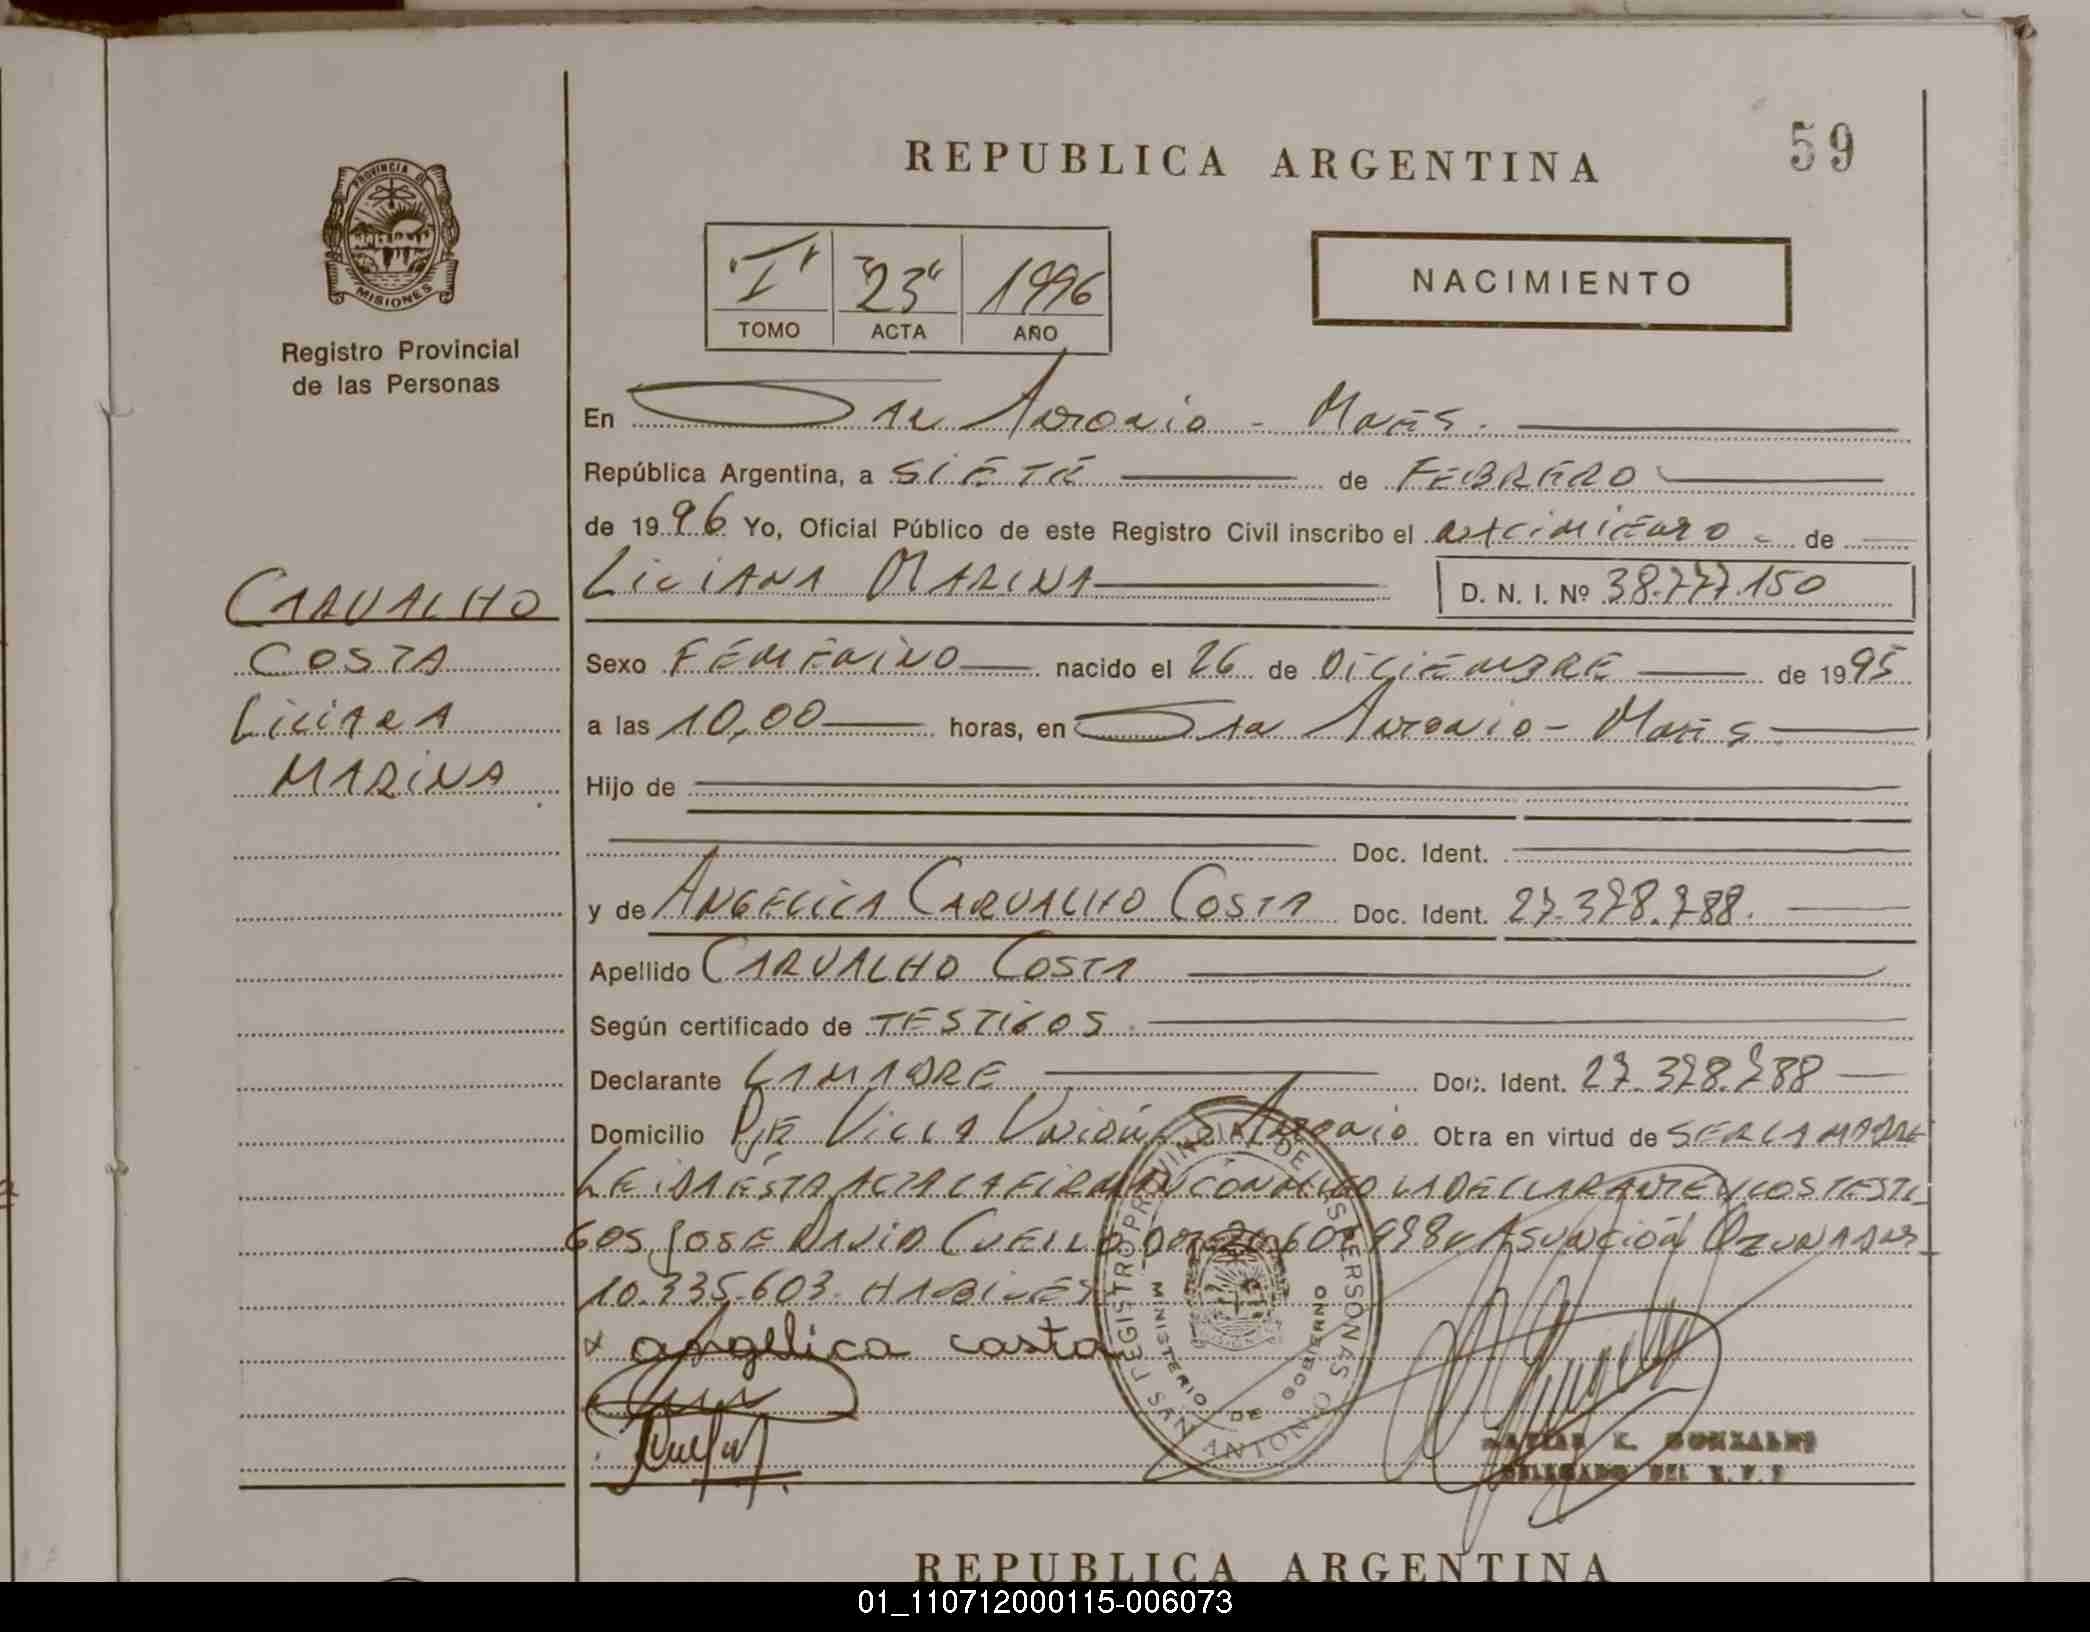 59
REPUBLICA ARGENTINA
PROVINCIA DE
MISIONES
Registro Provincial
de las Personas
"I" "23" 1996
TOMO ACTA AÑO
NACIMIENTO
En San Antonio - Mnes.
República Argentina, a SIETE de FEBRERO
de 1996 Yo, Oficial Público de este Registro Civil inscribo el nacimiento de
LICIANA MARINA D. N. I. Nº 38.777.150
CARVALHO
COSTA
LICIANA
MARINA
Sexo FEMENINO nacido el 26 de DICIEMBRE de 1995
a las 10,00 horas, en San Antonio - Mnes
Hijo de
Doc. Ident.
y de ANGELICA CARVALHO COSTA Doc. Ident. 27.378.788.
Apellido CARVALHO COSTA
Según certificado de TESTIGOS
Declarante LA MADRE Doc. Ident. 27.378.788
Domicilio Pje Villa Unión S Antonio Obra en virtud de SER LA MADRE
LEIDA ESTA ACTA LA FIRMAN CONMIGO LA DECLARANTE Y LOS TESTI
GOS JOSE DAVID CUELLO DNI 20.602.998 y ASUNCIÓN OZUNA DNI
10.335.603 HABILES
x angelica casta
REGISTRO PROVINCIAL DE LAS PERSONAS
MINISTERIO DE GOBIERNO
SAN ANTONIO
K. GONZALES
DELEGADO DEL R.P.P
REPUBLICA ARGENTINA
01_110712000115-006073